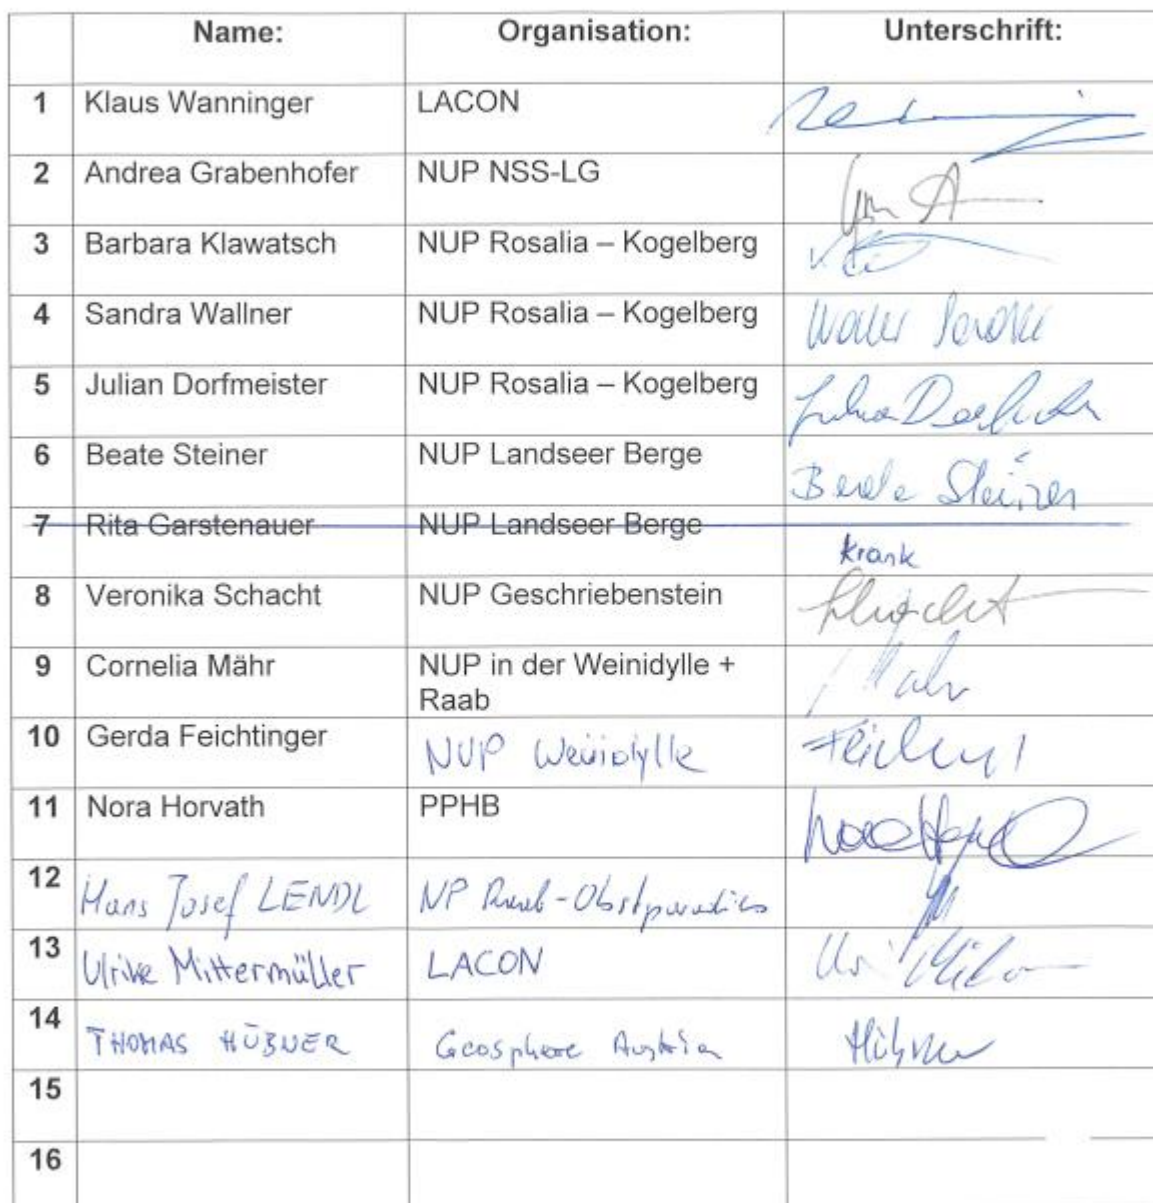 Name: Organisation: Unterschrift:
1 Klaus Wanninger LACON
2 Andrea Grabenhofer NUP NSS-LG
3 Barbara Klawatsch NUP Rosalia – Kogelberg
4 Sandra Wallner NUP Rosalia – Kogelberg Waller Sandra
5 Julian Dorfmeister NUP Rosalia – Kogelberg
6 Beate Steiner NUP Landseer Berge Beate Steiner
7 Rita Garstenauer NUP Landseer Berge
krank
8 Veronika Schacht NUP Geschriebenstein Schacht
9 Cornelia Mähr NUP in der Weinidylle +
Raab
10 Gerda Feichtinger NUP Weinidylle
11 Nora Horvath PPHB
12 Hans Josef LENDL NP Raab-Obstparadies
13 Ulrike Mittermüller LACON
14 THOMAS HÜBNER Geosphere Austria Hübner
15
16